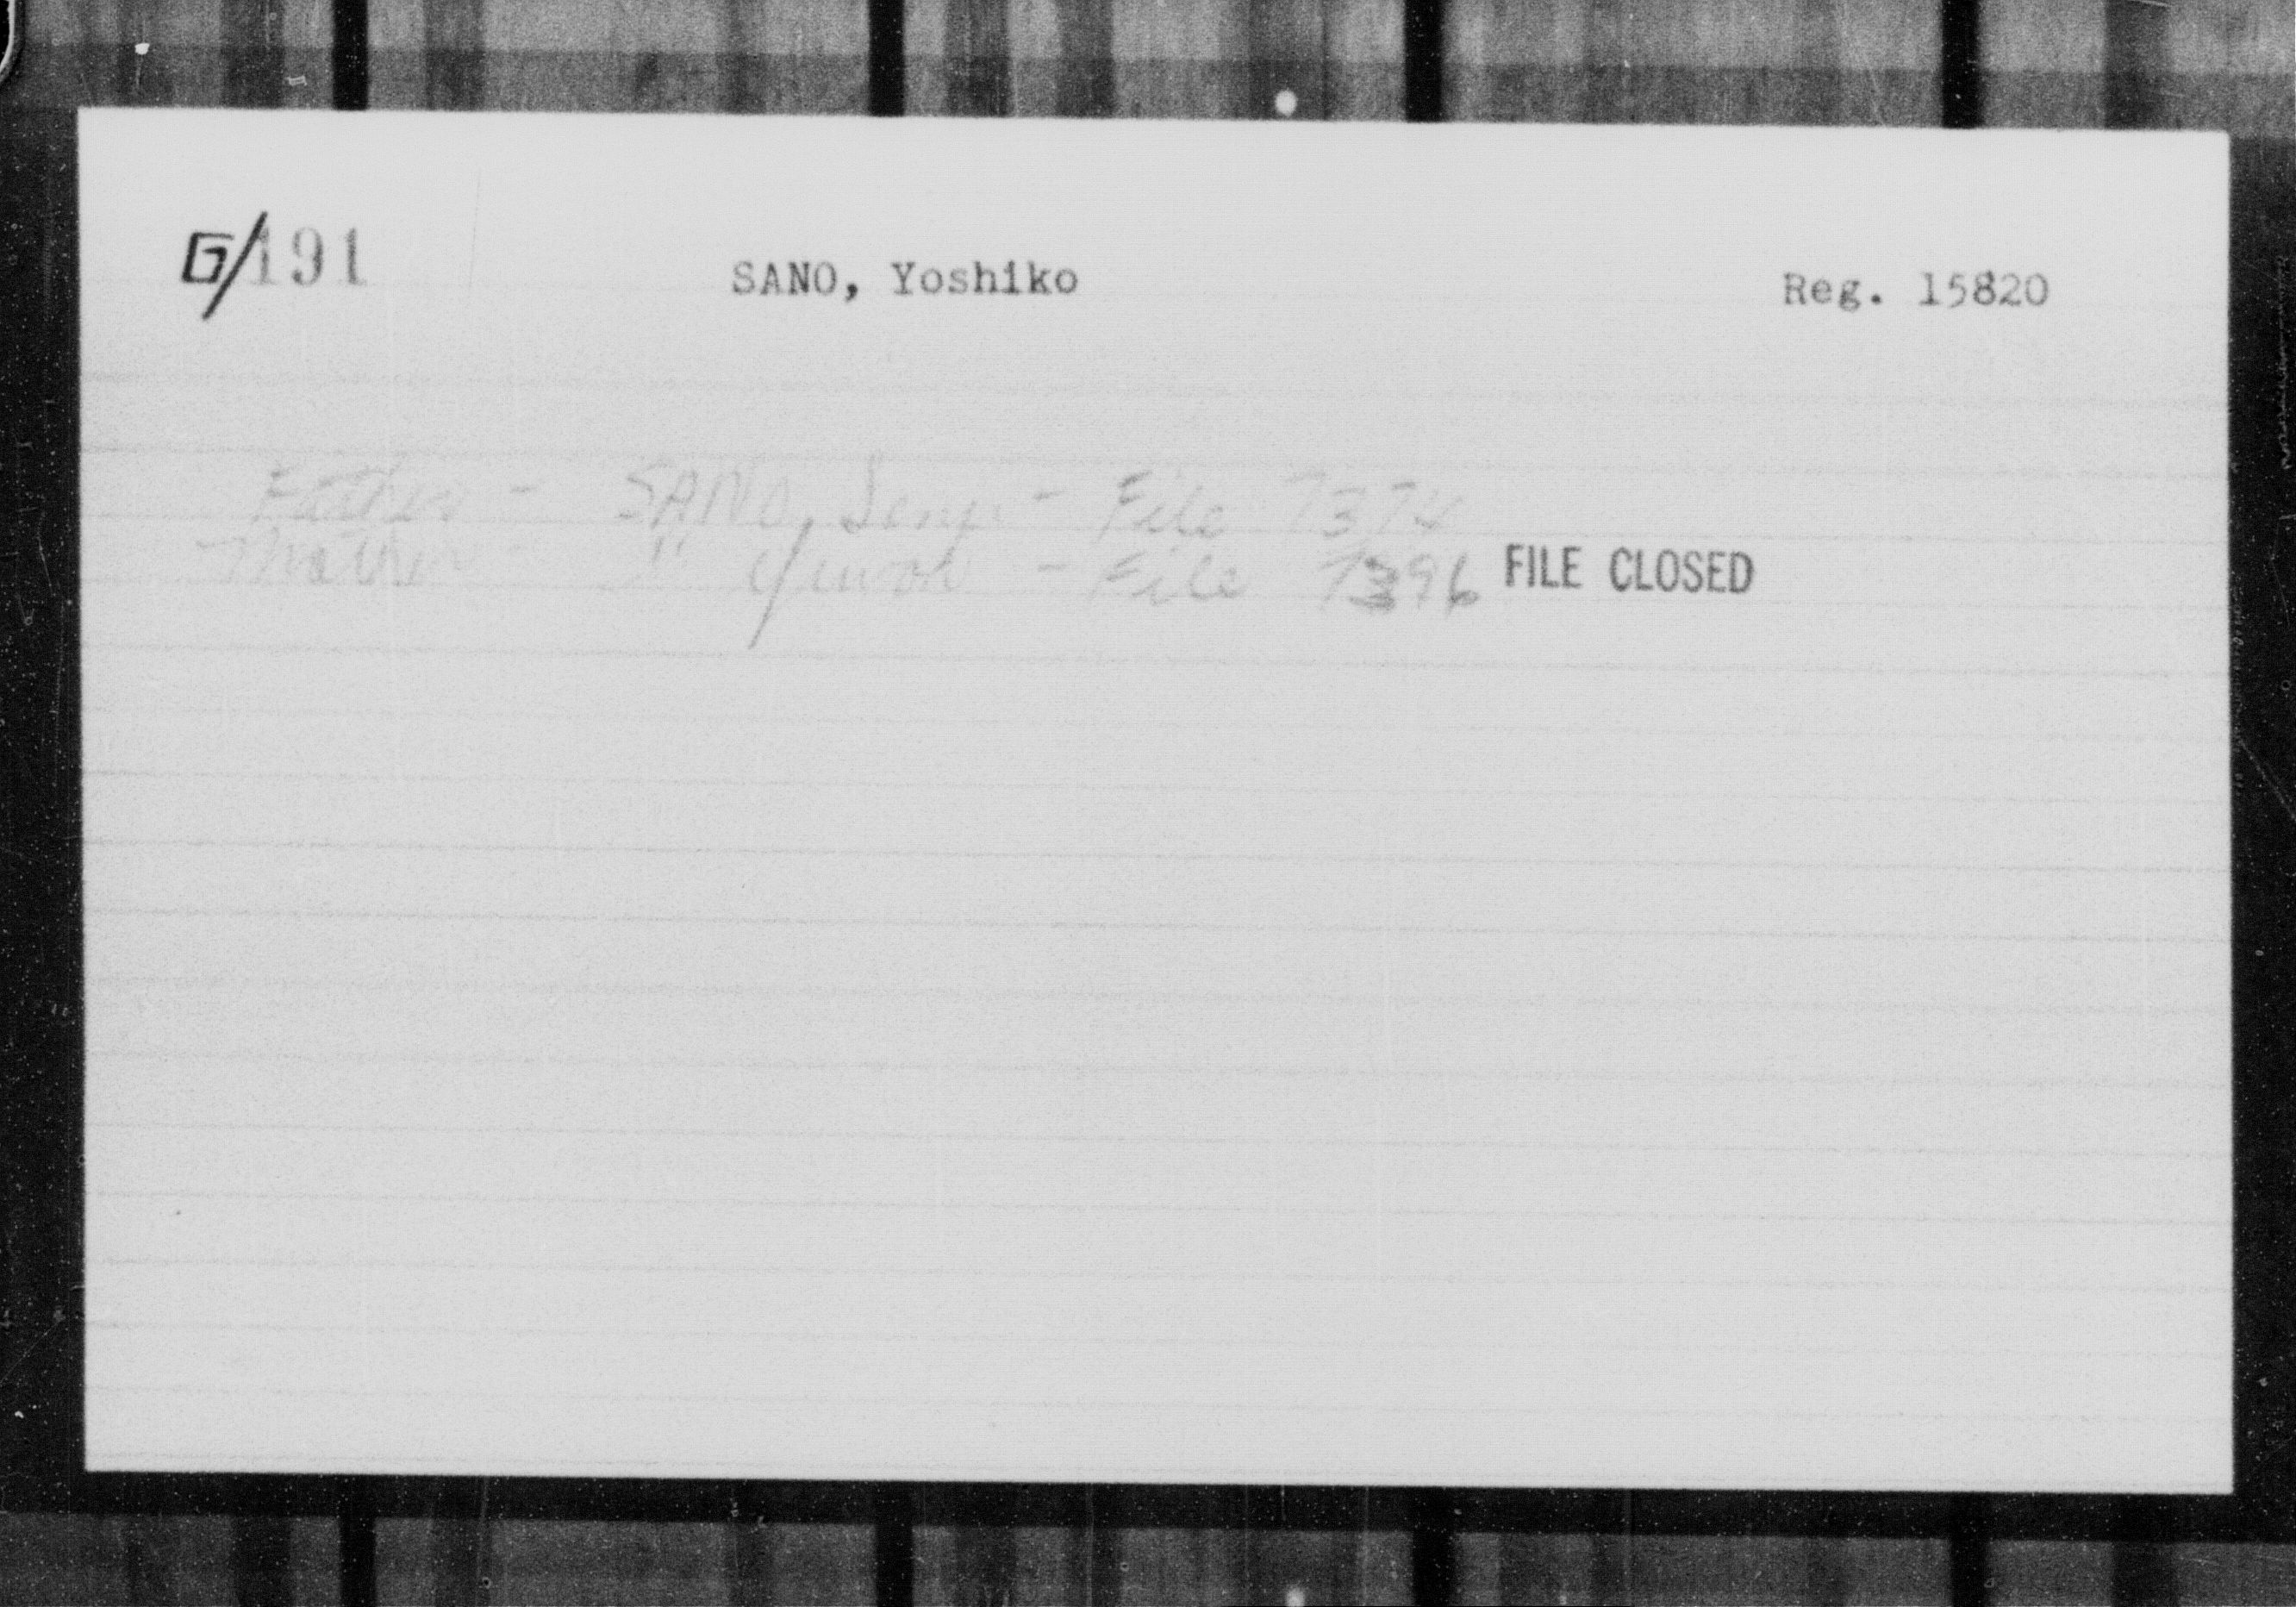 G/191 SANO, Yoshiko Reg. 15820
Father - SANO, - File 7374
Mother - " - File 7396 FILE CLOSED